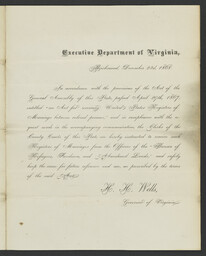 Executive Department of Virginia,
Richmond, December 23d 1868.
In accordance with the provisions of the Act of the
General Assembly of this State, passed April 19th, 1867,
entitled "An Act to
Marriage between colored persons," and in compliance with the re-
quest made in the accompanying communication, the Clerks of the
County Courts of this State are hereby instructed to receive such
Registers of Marriages from the Officers of the "Bureau of
Refugees, Freedmen and Abandoned Lands," and safely
keep the same for future reference and use as provided by the terms
of the said
H. H. Wells,
Governor of Virginia.